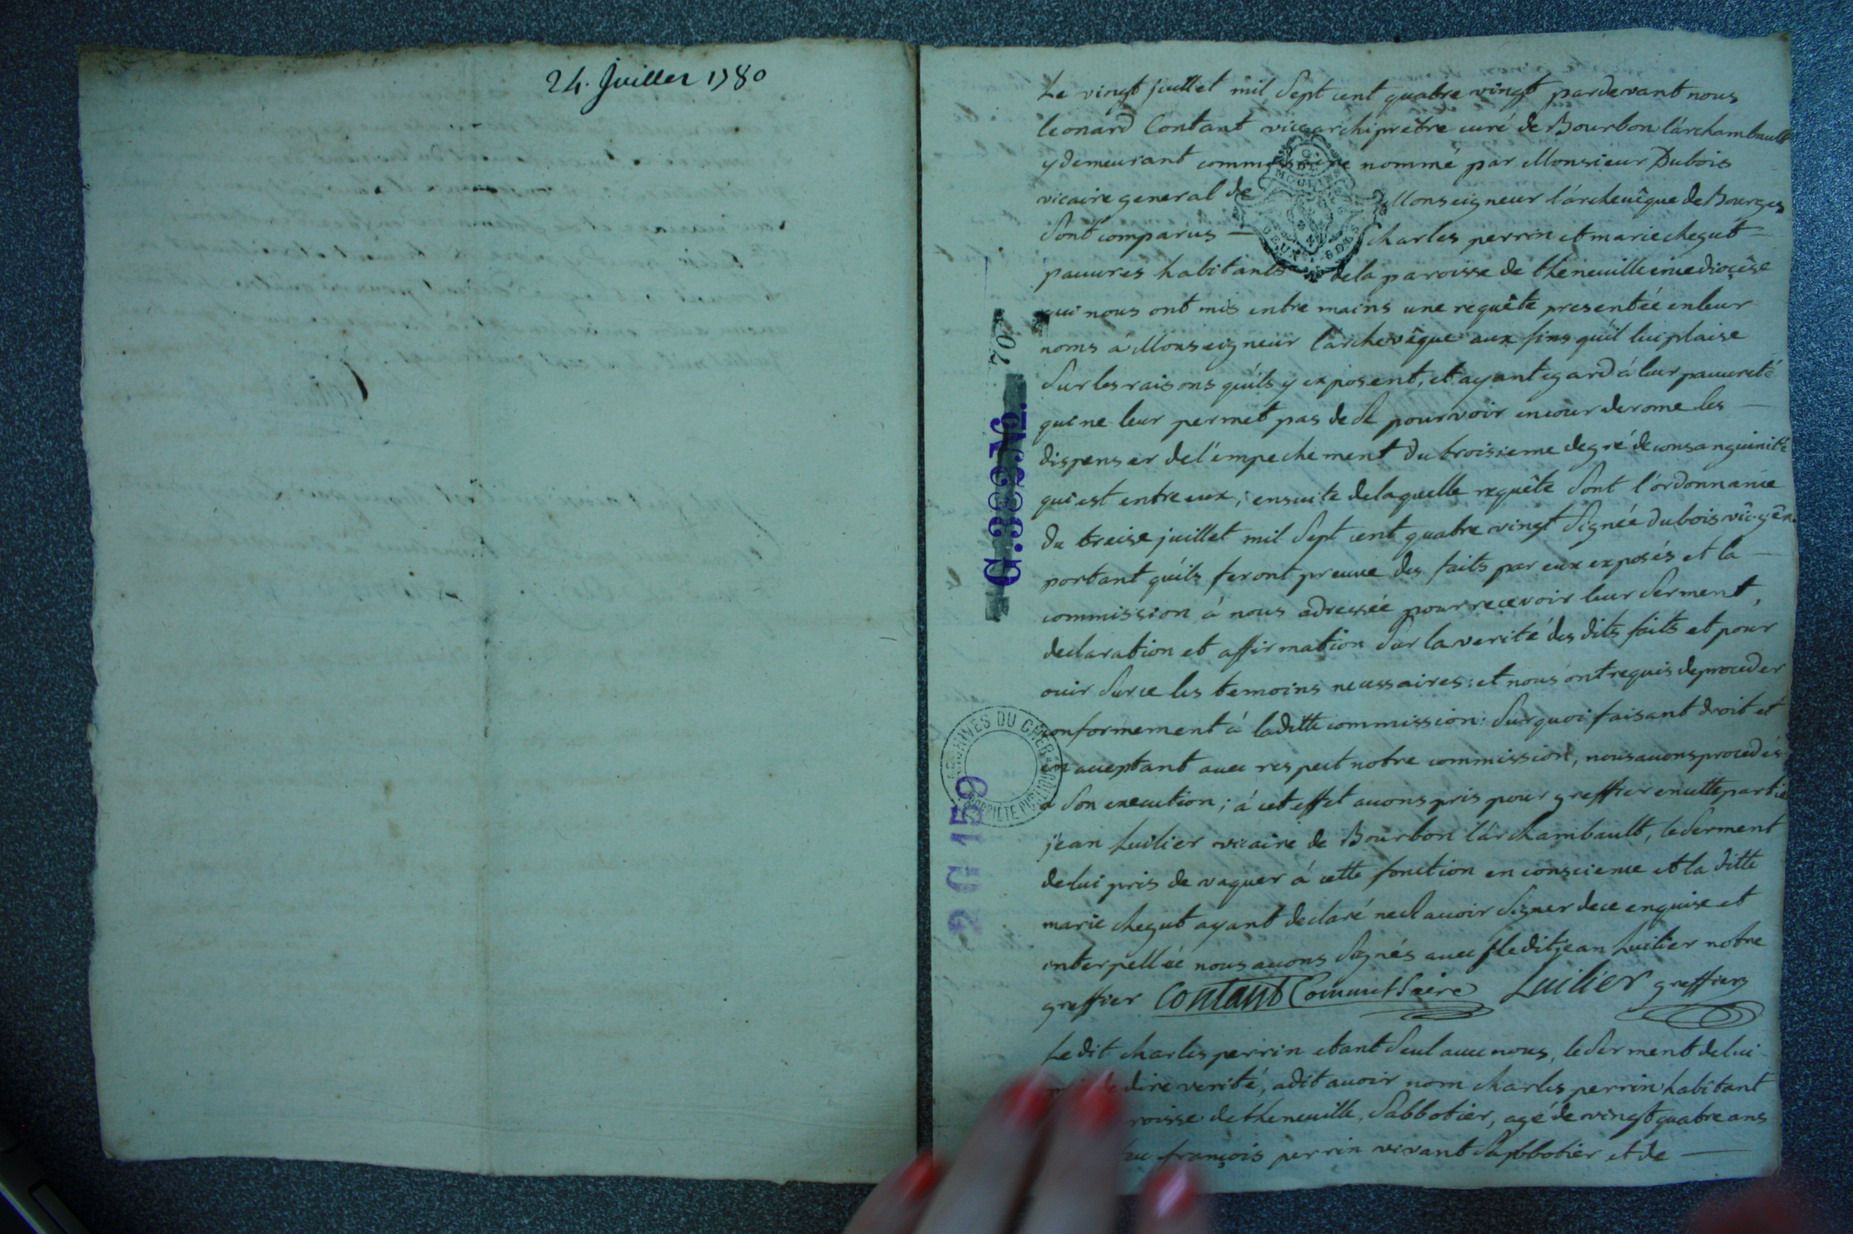 24. Juillet 1780
Le vingt juillet mil Sept cent quatre vingt pardevant nous
leonard Contant vice archiprêtre curé de Bourbon l'archambault
y demeurant commissaire nommé par Monsieur Dubois
vicaire general de Monseigneur l'archevêque de Bourges
Sont comparus — charles perrin et marie chegut —
pauvres habitants de la paroisse de theneuille en ce diocêse
qui nous ont mis entre mains une requête presentée en leur
noms à Monseigneur l'archevêque aux fins qu'il lui plaise
Sur les raisons qu'ils y exposent, et ayant egard à leur pauvreté
qui ne leur permet pas de Se pourvoir en cour de rome les —
dispenser de l'empechement du troisieme degré de consanguinité
qui est entre eux; ensuite de laquelle requête Sont l'ordonnance
du treise juillet mil Sept cent quatre vingt Signée dubois vic. gên.
portant qu'ils feront preuve des faits par eux exposés et la —
commission à nous adressée pour recevoir leur Serment,
declaration et affirmation Sur la verité des dits faits et pour
ouir Sur ce les temoins necessaires: et nous ont requis de proceder
conformement à la ditte commission: Sur quoi faisant droit et
acceptant avec respect notre commission, nous avons procedés
à Son execution; à cet effet avons pris pour greffier en cette partie
jean Luilier vicaire de Bourbon l'archambault, le Serment
de lui pris de vaquer à cette fonction en conscience et la ditte
marie chegut ayant declaré ne Savoir Signer de ce enquise et
interpellée nous avons Signés avec le dit jean Luilier notre
greffier Contant Commissaire Luilier greffier
Le dit charles perrin etant Seul avec nous, le Serment de lui
dire verité, a dit avoir nom charles perrin habitant
roisse de theneuille, Sabbotier, agé de vingt quatre ans
françois perrin vivant Sabbotier et de —
G. 382 N2. 70
2 G 159
ARCHIVES DU CHER
PROPRIETE PUBLIQUE
G. DE MOULINS
DEUX SOLS